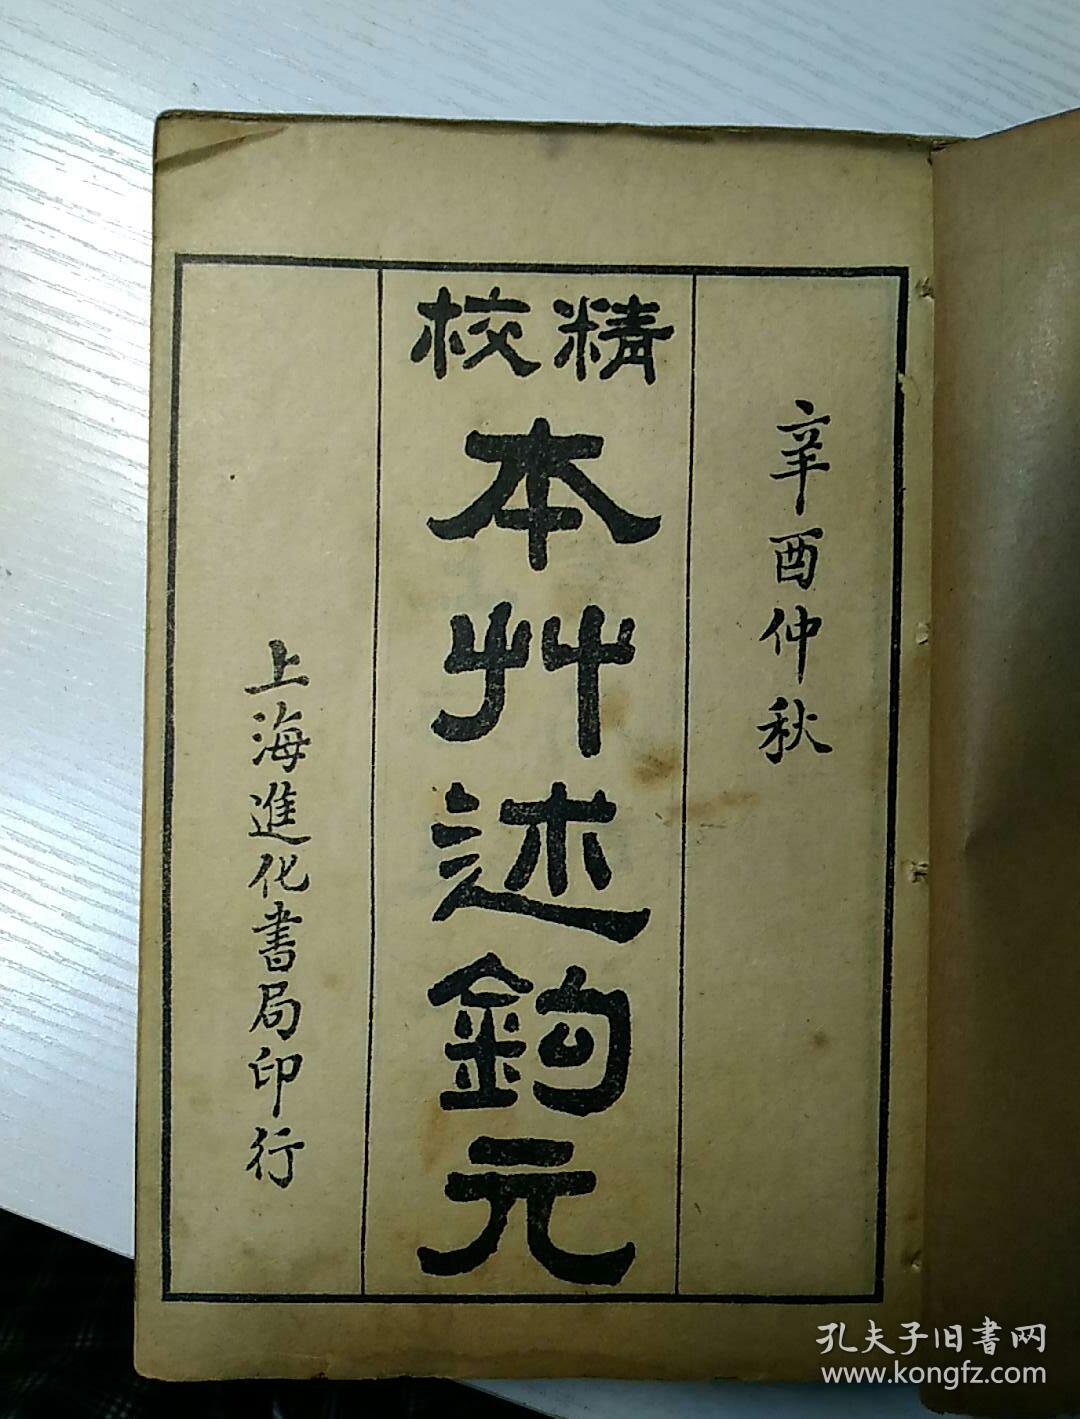 辛酉仲秋
精校
本艸述鉤元
上海進化書局印行
孔夫子旧書网
www.kongfz.com